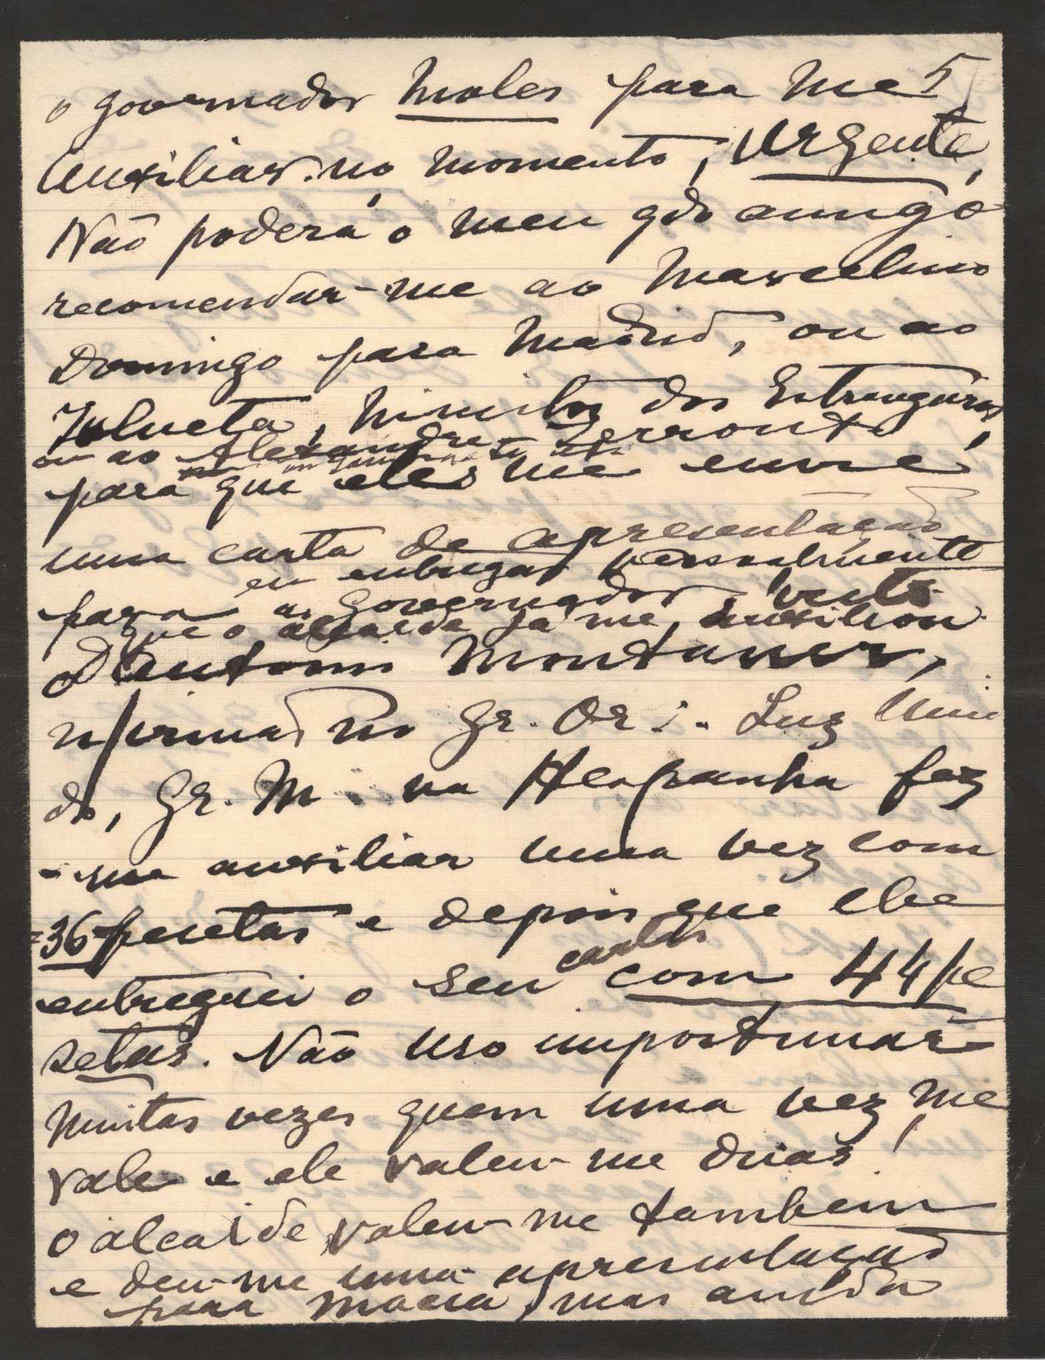 o governador Moles para me 5
auxiliar no momento, Urgente,
Não poderá o meu qdo amigo
recomendar-me ao Marcelino
Domingo para Madrid, ou ao
Zulueta, Ministro dos Estrangeiros,
ou ao Alexandre Lerroux
para que eles me envie
uma carta de apresentação
eu entregar pessoalmente
para ao Governador, visto
que o alcaide já me auxiliou.
O Antonio Montaner,
no Gr. Or∴ Luz Uni
do, Gr. M∴ na Hespanha fez
-me auxiliar uma vez com
=36 pesetas e depois que lhe
entreguei o seu cartão com 44 pe
setas. Não uso importunar
muitas vezes quem uma vez me
vale e ele valeu-me duas!
O alcaide valeu-me tambem
e deu-me uma apresentação
para Maciá, mas ainda